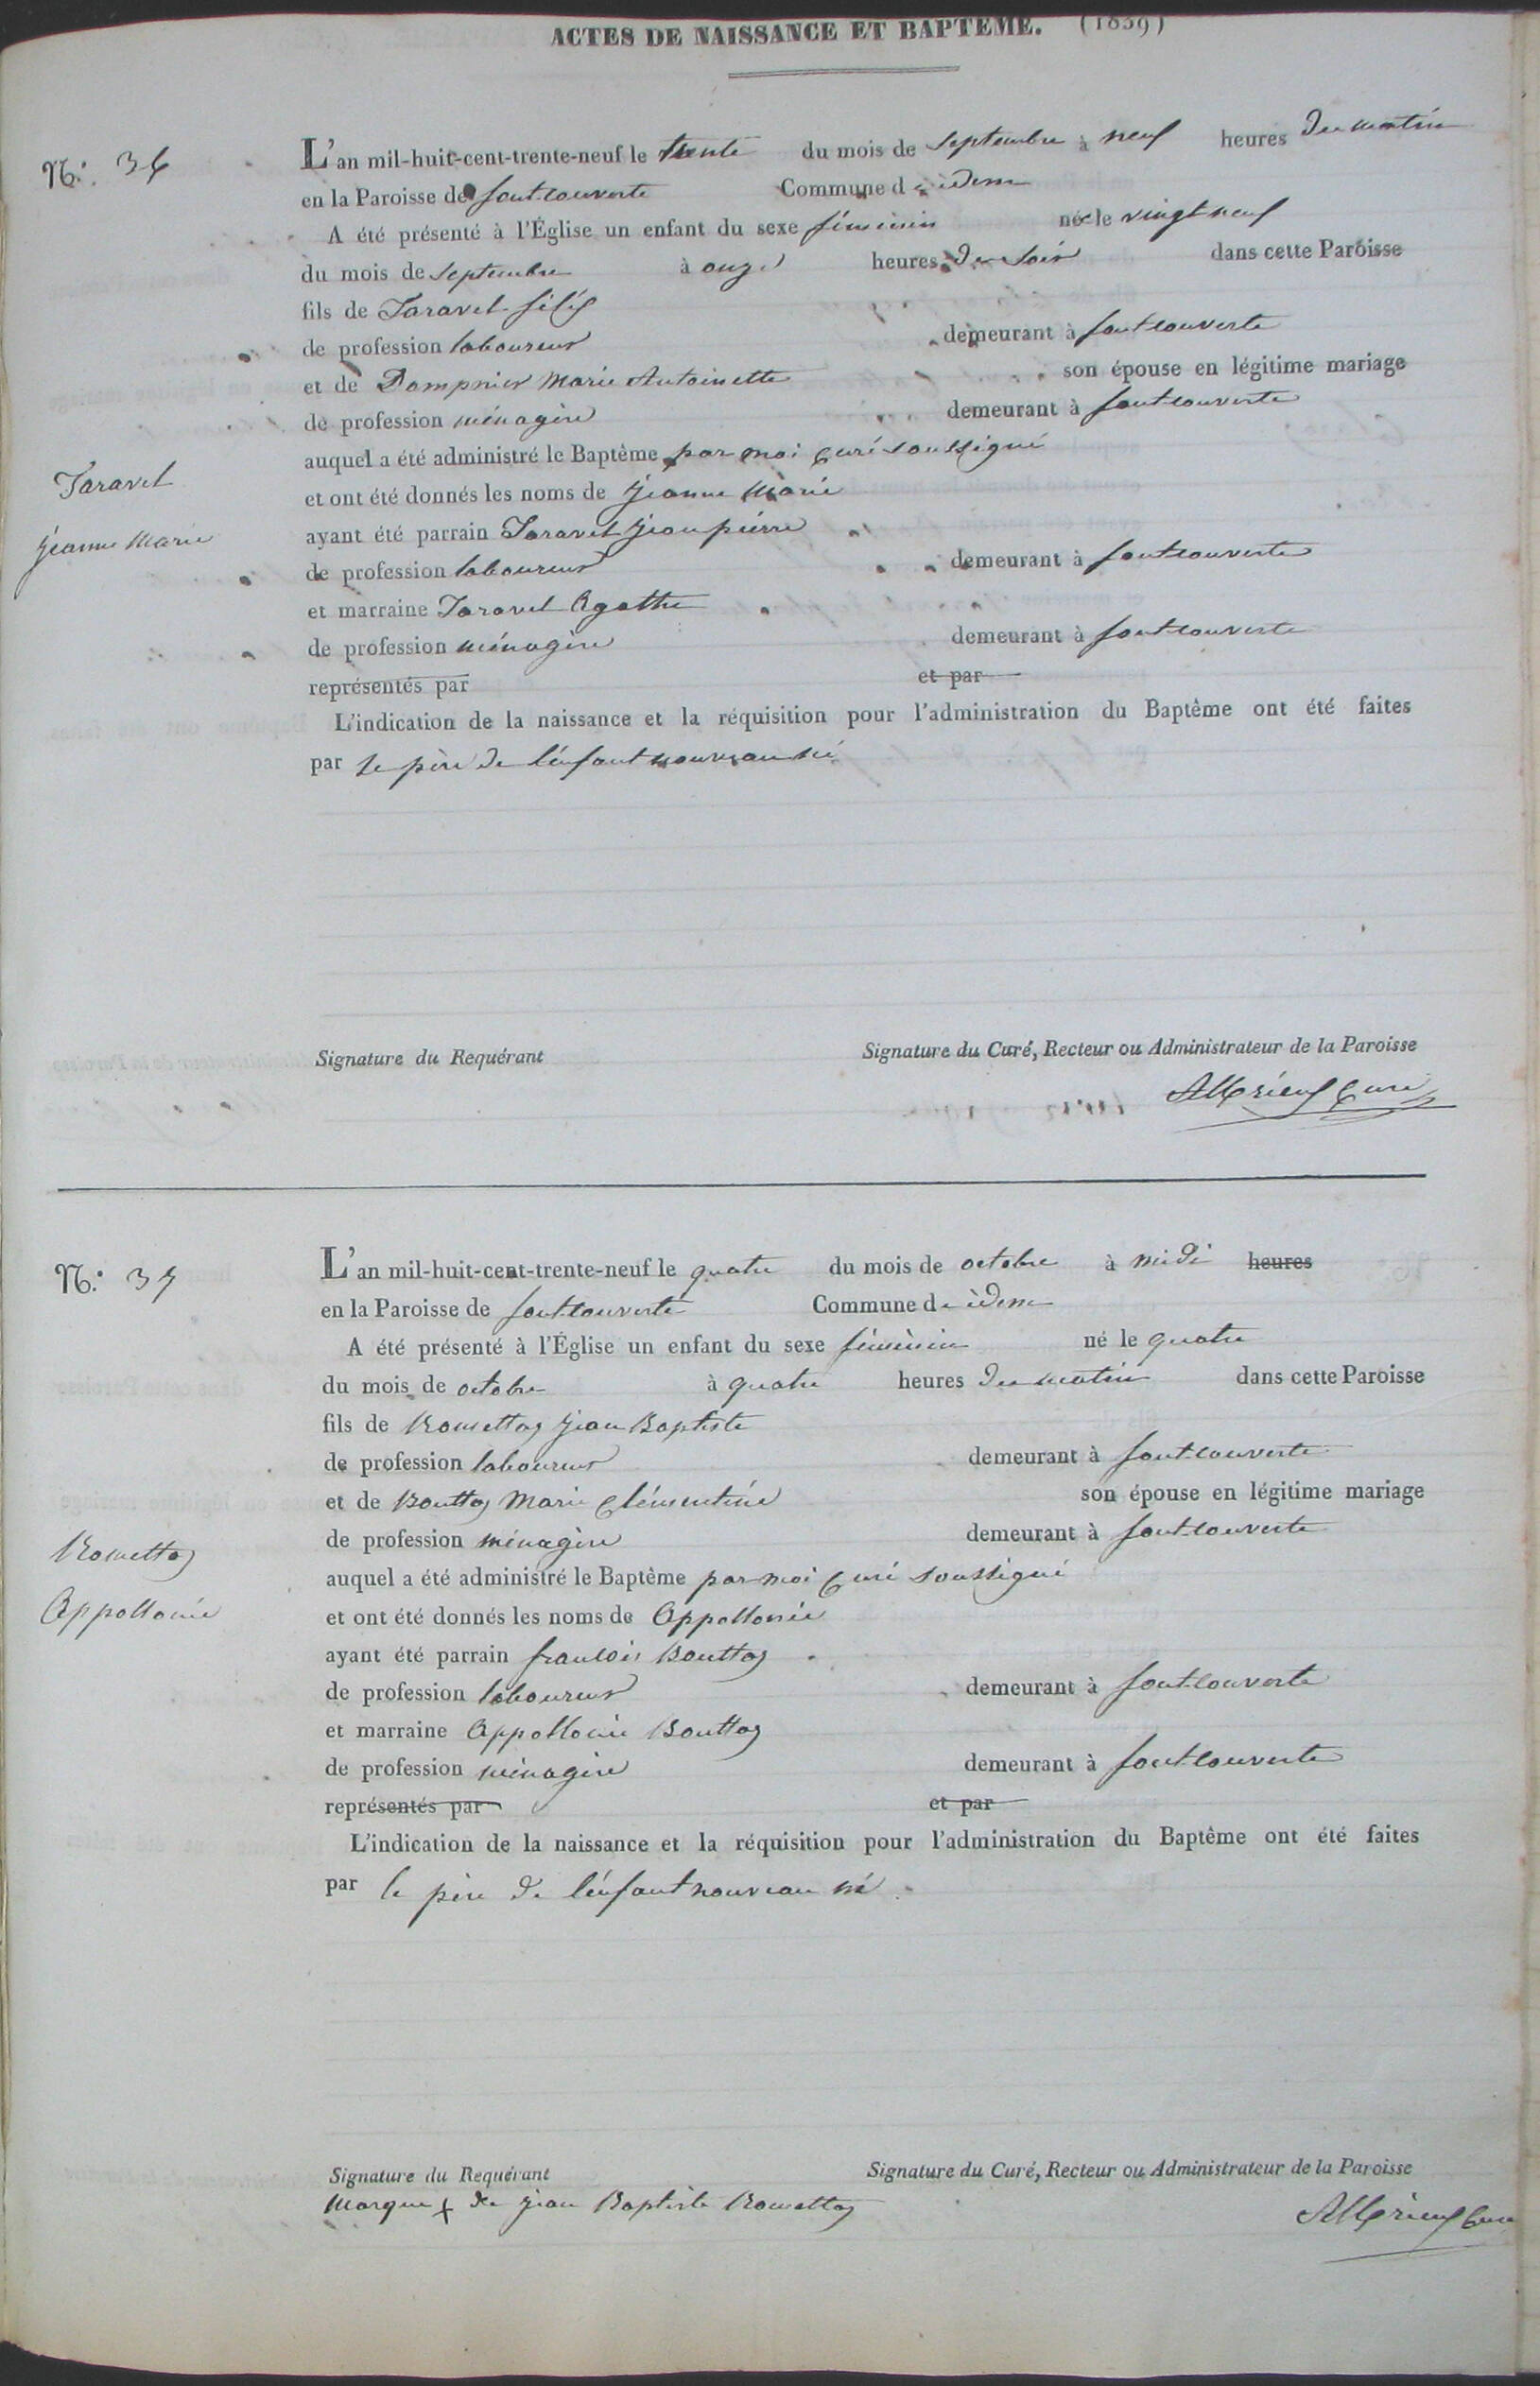 ACTES DE NAISSANCE ET BAPTÊME. (1839)
N.° 36
L'an mil-huit-cent-trente-neuf le trente du mois de septembre à neuf heures du matin
en la Paroisse de fontcouverte Commune d idem
A été présenté à l'Église un enfant du sexe féminin né le vingt neuf
du mois de septembre à onze heures du soir dans cette Paroisse
fils de Taravel
de profession laboureur demeurant à fontcouverte
et de Dompnier Marie Antoinette son épouse en légitime mariage
de profession ménagère demeurant à fontcouverte
auquel a été administré le Baptême par moi Curé soussigné
Taravel
et ont été donnés les noms de Jeanne Marie
Jeanne Marie
ayant été parrain Taravel Jean pierre
de profession laboureur demeurant à fontcouverte
et marraine Taravel Agathe
de profession ménagère demeurant à fontcouverte
représentés par et par
L'indication de la naissance et la réquisition pour l'administration du Baptême ont été faites
par le père de l'enfant nouveau né
Signature du Requérant Signature du Curé, Recteur ou Administrateur de la Paroisse
Curé
N.° 37
L'an mil-huit-cent-trente-neuf le quatre du mois de octobre à midi heures
en la Paroisse de fontcouverte Commune de idem
A été présenté à l'Église un enfant du sexe féminin né le quatre
du mois de octobre à quatre heures du matin dans cette Paroisse
fils de Romettaz Jean Baptiste
de profession laboureur demeurant à fontcouverte
et de Bouttaz Marie Clémentine son épouse en légitime mariage
de profession ménagère demeurant à fontcouverte
Romettaz
auquel a été administré le Baptême par moi Curé soussigné
Appollonie
et ont été donnés les noms de Appollonie
ayant été parrain francois Bouttaz
de profession laboureur demeurant à fontcouverte
et marraine Appollonie Bouttaz
de profession ménagère demeurant à fontcouverte
représentés par et par
L'indication de la naissance et la réquisition pour l'administration du Baptême ont été faites
par le père de l'enfant nouveau né
Signature du Requérant Signature du Curé, Recteur ou Administrateur de la Paroisse
Marque x de Jean Baptiste Romettaz
Curé